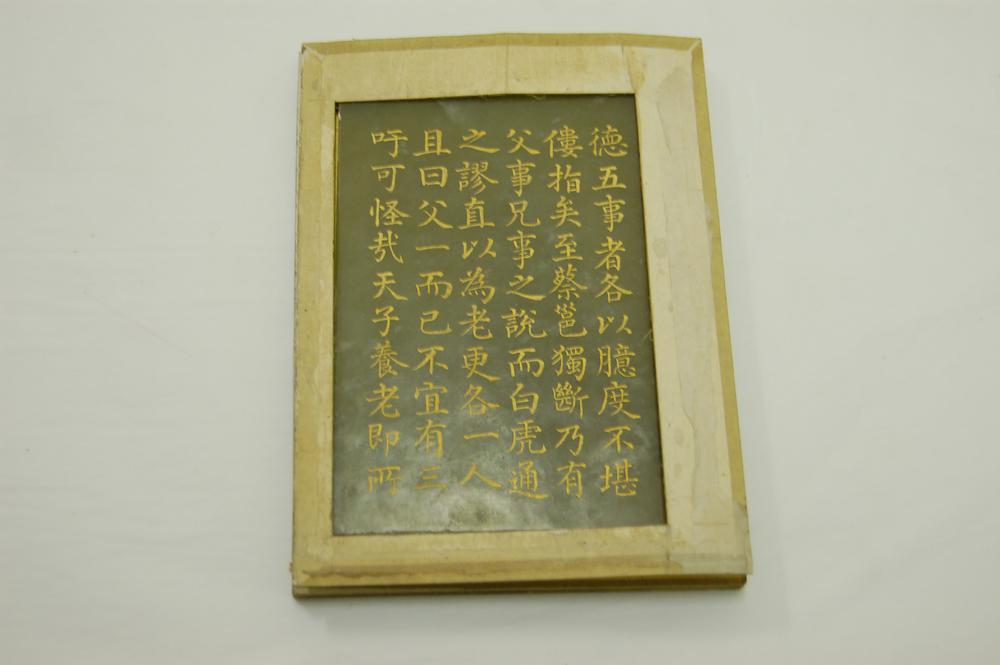 德五事者各以臆度不堪
僂指矣至蔡邕獨斷乃有
父事兄事之說而白虎通
之謬直以為老更各一人
且曰父一而已不宜有三
吁可怪哉天子養老即所